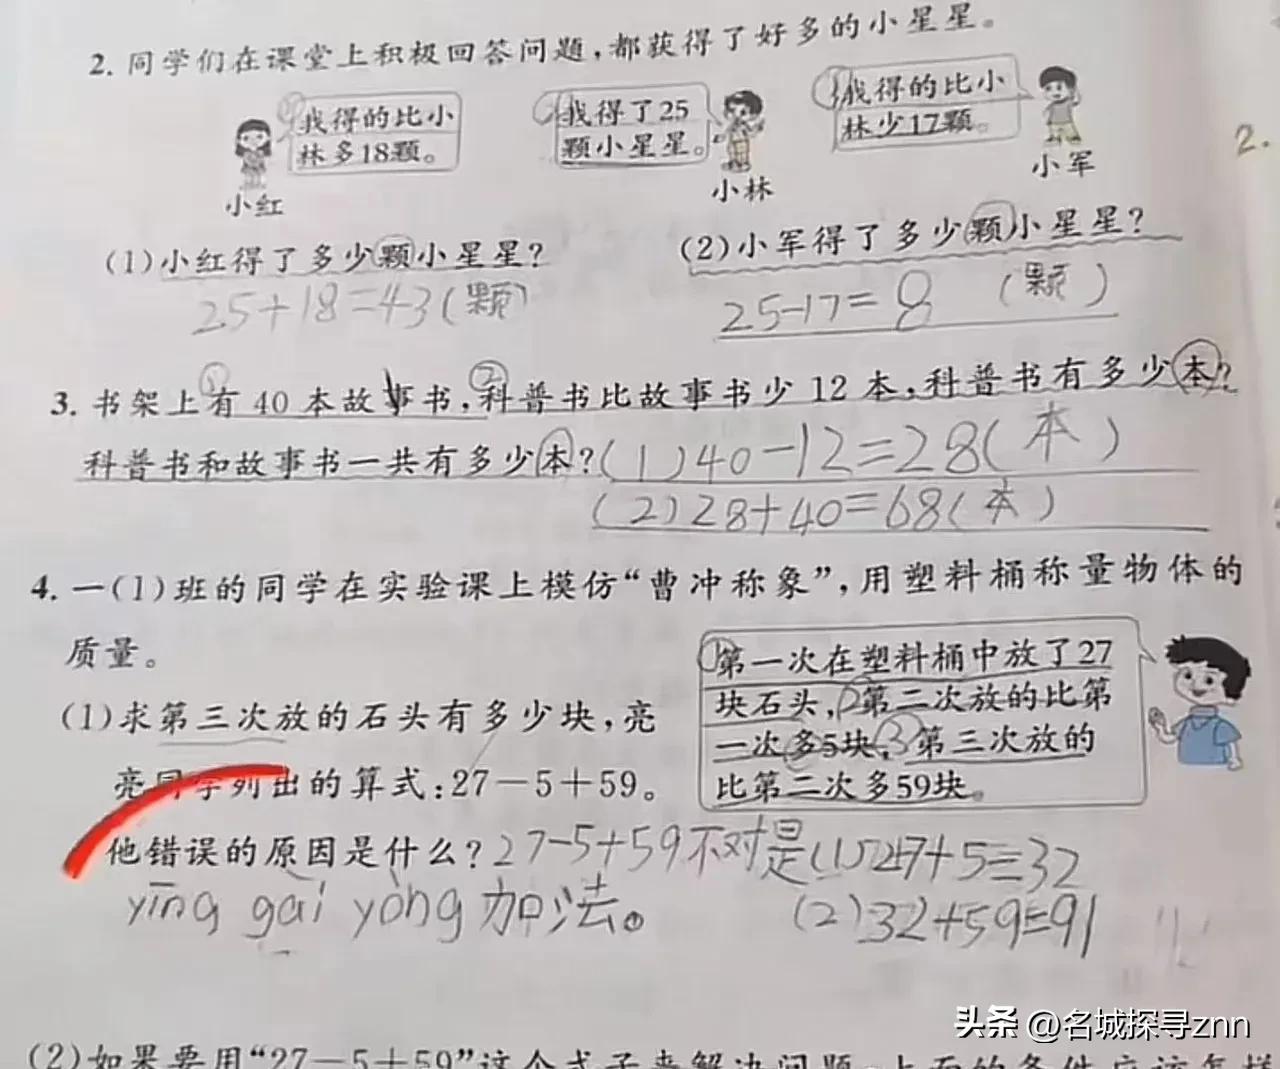 2. 同学们在课堂上积极回答问题，都获得了好多的小星星。
①我得的比小林多18颗。
小红
我得了25颗小星星。
小林
我得的比小林少17颗。
小军
2.
(1)小红得了多少颗小星星？
25+18=43(颗)
(2)小军得了多少颗小星星？
25-17=8 (颗)
3. 书架上有40本故事书，科普书比故事书少12本，科普书有多少本？
科普书和故事书一共有多少本？(1)40-12=28(本)
(2)28+40=68(本)
4. 一(1)班的同学在实验课上模仿“曹冲称象”，用塑料桶称量物体的
质量。
(1)求第三次放的石头有多少块，亮
亮同学列出的算式：27－5＋59。
他错误的原因是什么？27-5+59不对是
yīng gāi yòng 加法。
①第一次在塑料桶中放了27
块石头，②第二次放的比第
一次多5块，③第三次放的
比第二次多59块。
(1)27+5=32
(2)32+59=91
(2)如果要用“27－5＋59”这个式子来解决问题，上面的条件应该怎样
头条 @名城探寻znn